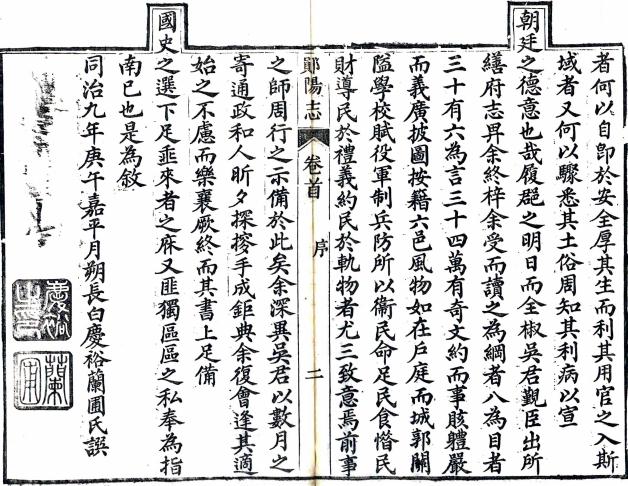 者何以自卽於安全厚其生而利其用官之入斯
域者又何以驟悉其土俗周知其利病以宣
朝廷之德意也哉履郡之明日而全椒吳君覲臣出所
繕府志畀余終梓余受而讀之為綱者八為目者
三十有六為言三十四萬有奇文約而事賅體嚴
而義廣披圖按籍六邑風物如在戶庭而城郭關
隘學校賦役軍制兵防所以衞民命足民食
財導民於禮義約民於軌物者尤三致意焉前事
鄖陽志 卷首 序 二
之師周行之示備於此矣余深異吳君以數月之
寄通政和人昕夕探擥手成鉅典余復會逢其適
始之不慮而樂襄厥終而其書上足備
國史之選下足垂來者之庥又匪獨區區之私奉為指
南已也是為敘
同治九年庚午嘉平月朔長白慶裕蘭圃氏譔
慶裕
之印
蘭
圃